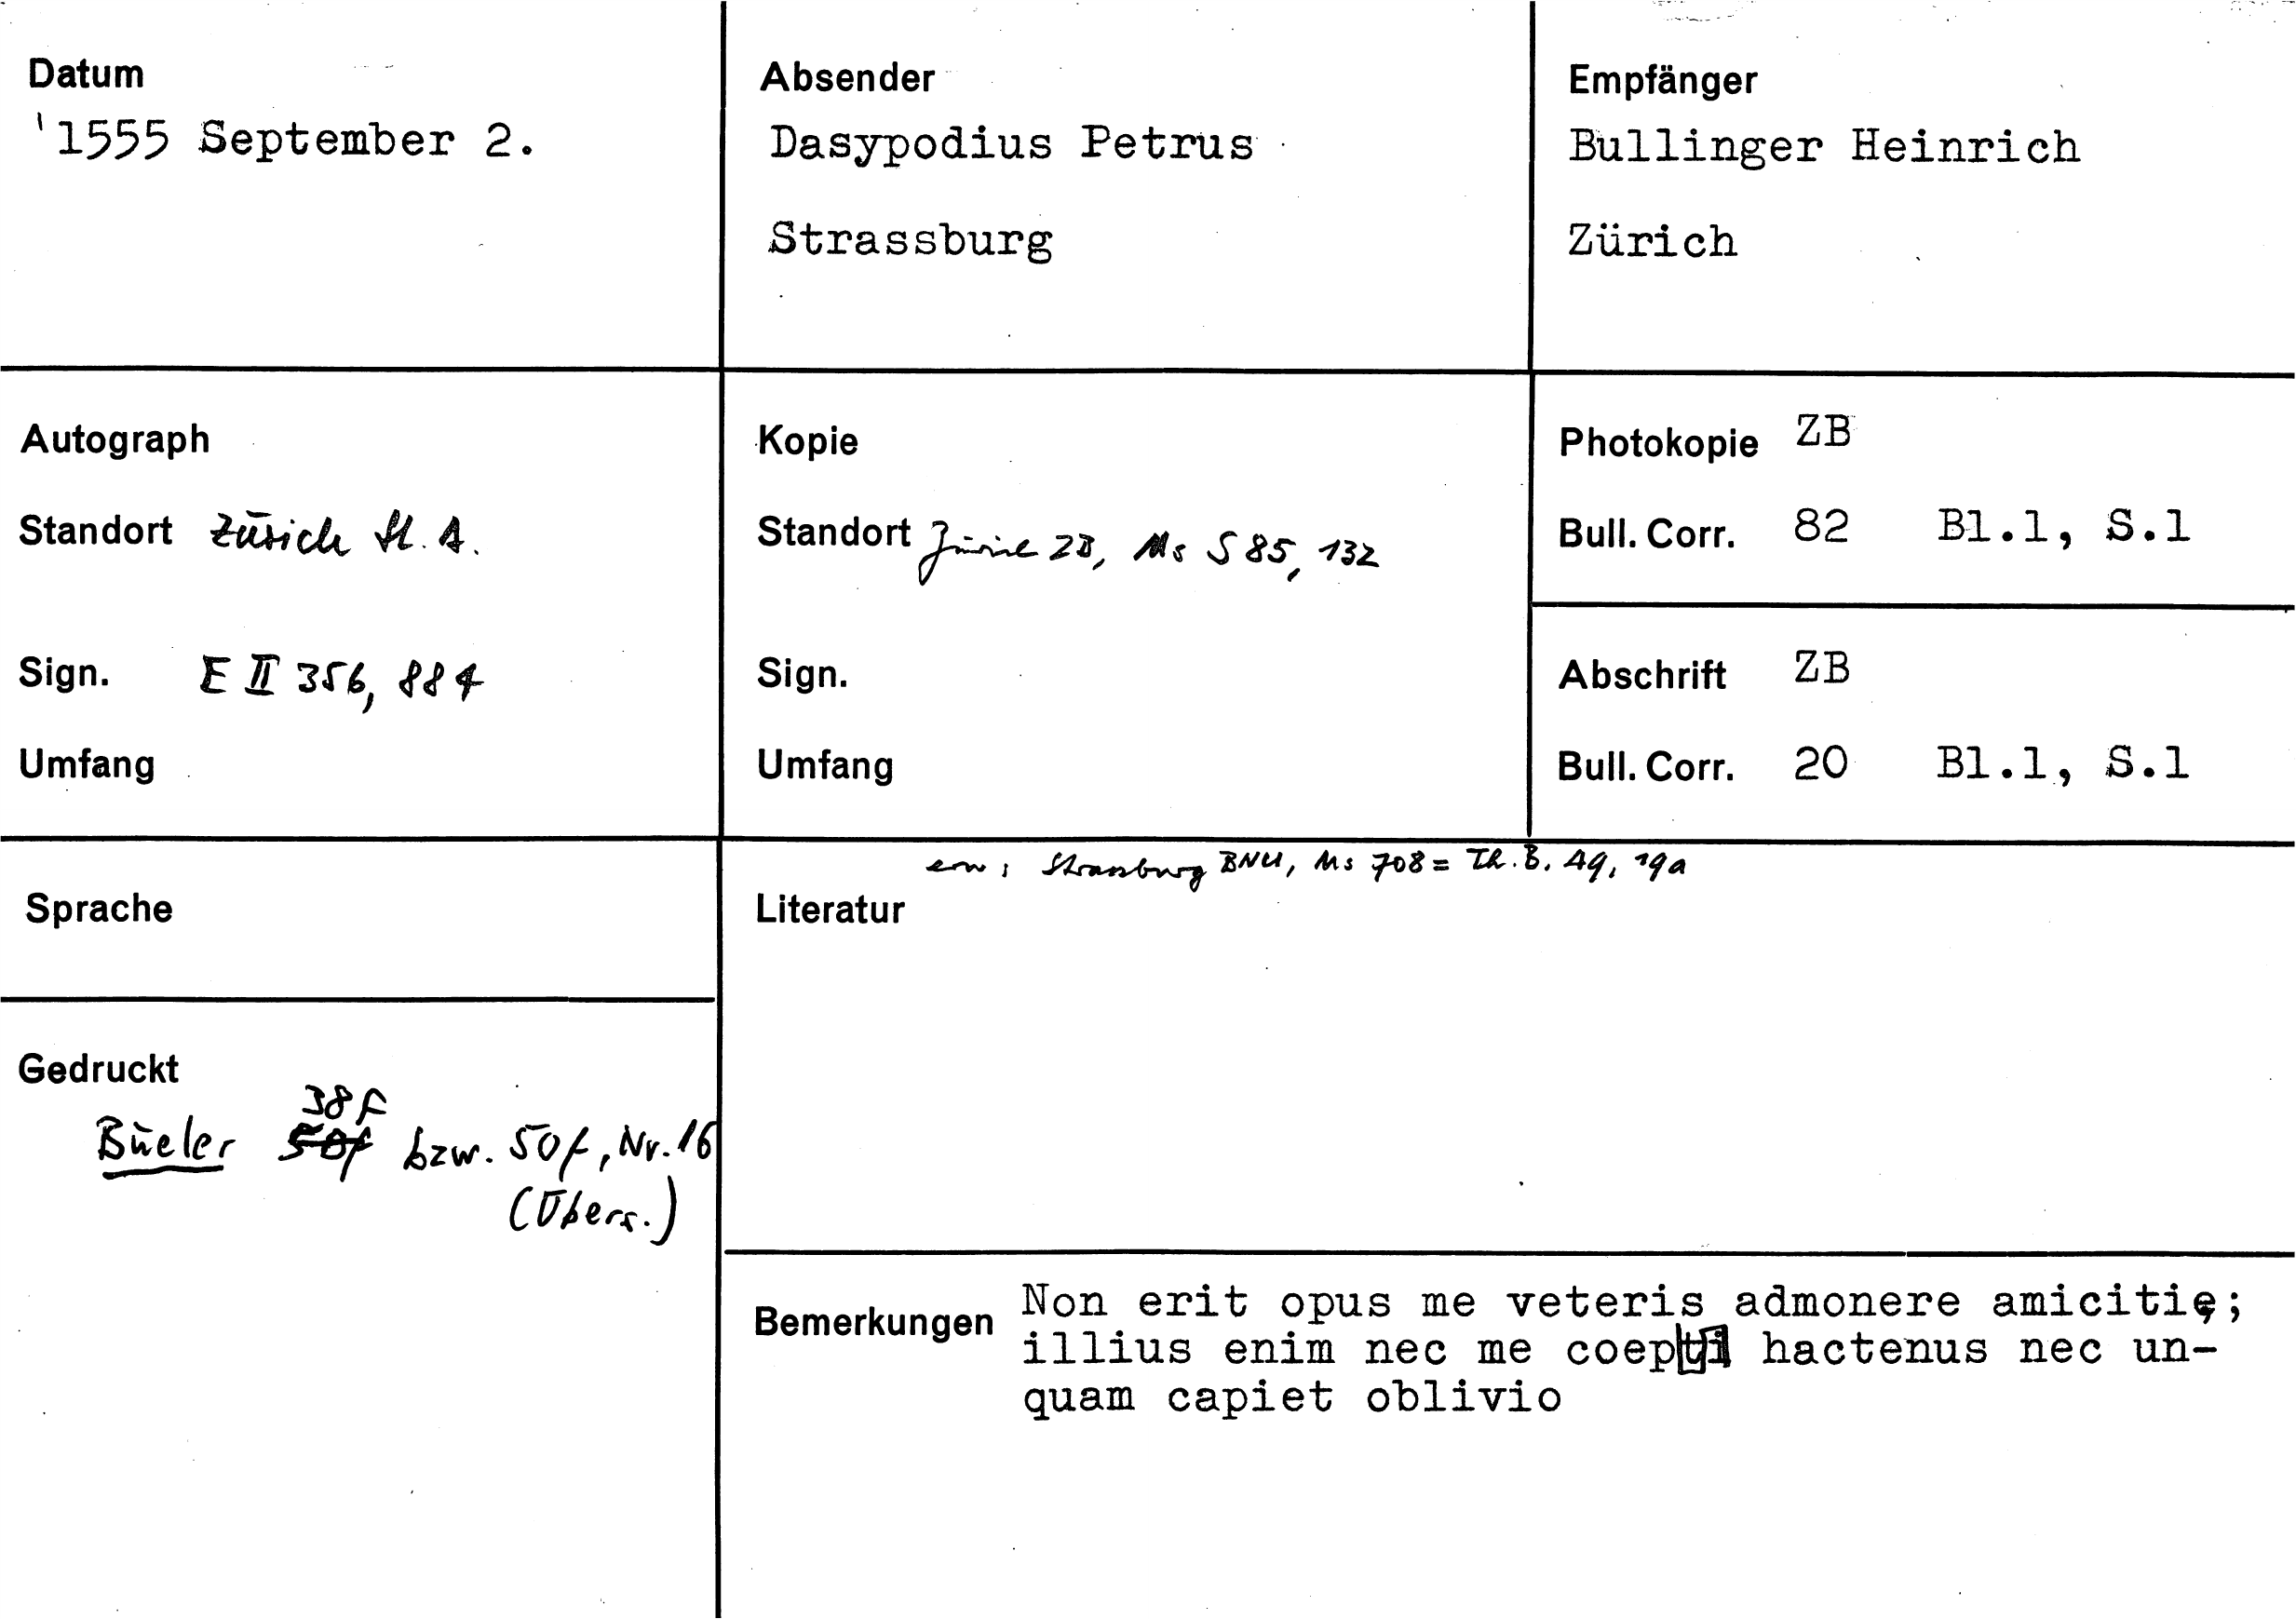 Datum
1555 September 2.
Absender
Dasypodius Petrus
Strassburg
Empfänger
Bullinger Heinrich
Zürich
Autograph
Standort Zürich St. A.
Sign. E II 356, 884
Umfang
Kopie
Standort Zürich ZB, Ms S 85, 132
Sign.
Umfang
Photokopie ZB
Bull. Corr. 82 Bl.1, S.1
Abschrift ZB
Bull. Corr. 20 Bl.1, S.1
Sprache
Strassburg BNU, Ms 708 = Th. B. 49, 19a
Literatur
Gedruckt
38f
Büeler 50f bzw. 50f, Nr. 16
(Übers.)
Bemerkungen
Non erit opus me veteris admonere amicitię;
illius enim nec me coepti hactenus nec un-
quam capiet oblivio